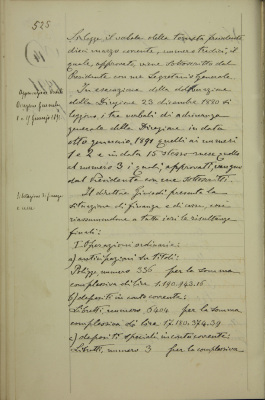 525
Si legge il verbale della tornata precedente
dieci marzo corrente, numero tredici, il
quale, approvato, viene sottoscritto dal
Presidente con me Segretario Generale.
In esecuzione della deliberazione
della Direzione 23 dicembre 1880 si
leggono i tre verbali di adunanza
generale della Direzione in data
otto gennaio 1891 quelli ai numeri
1 e 2 e in data 15 stesso mese quello
al numero 3 i quali, approvati, vengono
dal Presidente con me sottoscritti.
Situazione di finanza
e cassa.
Il direttore presenta la
situazione di finanza e di cassa, così
riassumendone a tutt'ieri le risultanze
finali:
I Operazioni ordinarie:
a) anticipazioni su titoli:
Polizze, numero 336 per la somma
complessiva di lire 1.190.143.16
b) depositi in conto corrente:
Libretti, numero 8404 per la somma
complessiva di lire 17.180.374.39
c) depositi speciali in conto corrente:
Libretti, numero 3 per la complessiva